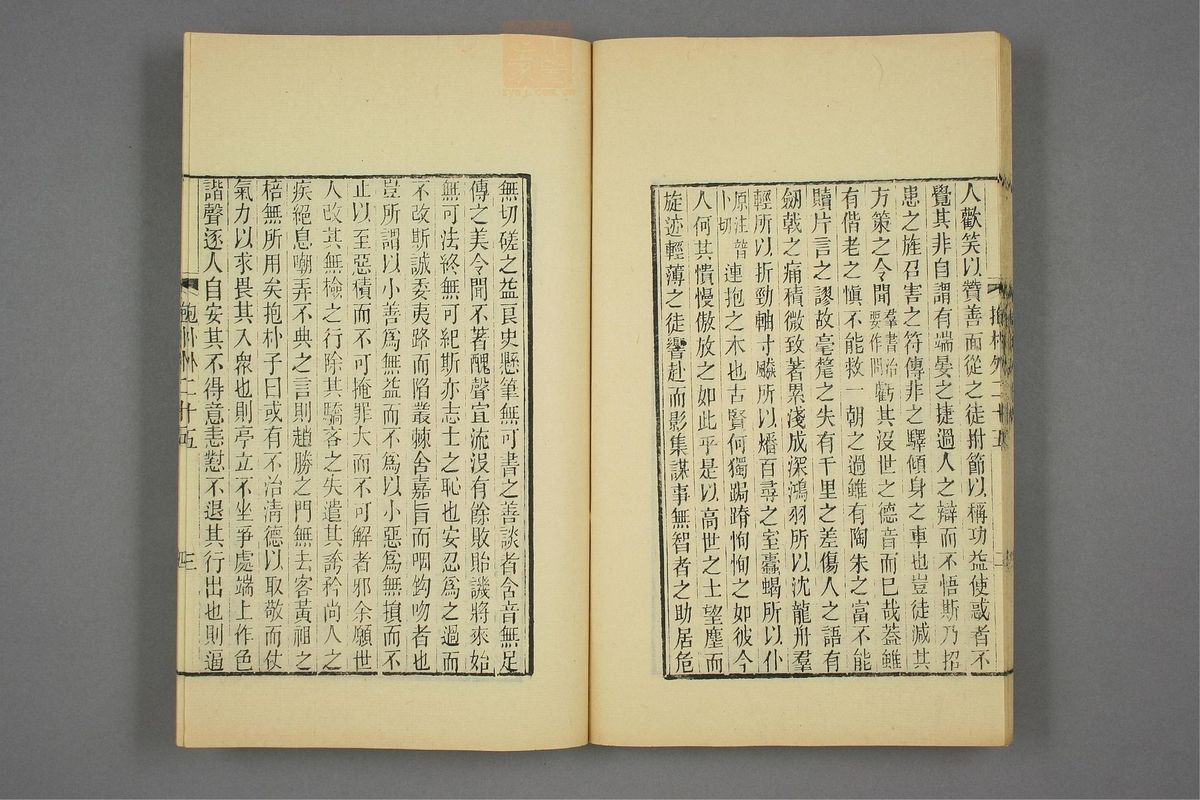 人歡笑以贊善面從之徒拊節以稱功益使惑者不
覺其非自謂有端晏之捷過人之辯而不悟斯乃招
患之旌召害之符傳非之驛傾身之車也豈徒減其
方策之令聞羣書治要作問虧其沒世之德音而已哉蓋雖
有偕老之愼不能救一朝之過雖有陶朱之富不能
贖片言之謬故毫氂之失有千里之差傷人之語有
劒戟之痛積微致著累淺成深鴻羽所以沈龍舟羣
輕所以折勁軸寸飈所以燔百尋之室蠹蝎所以仆
原注普卜切連抱之木也古賢何獨跼蹐恂恂之如彼今
人何其憒慢傲放之如此乎是以高世之士望塵而
旋迹輕薄之徒響赴而影集謀事無智者之助居危
抱朴外二十五
無切磋之益良史懸筆無可書之善談者含音無足
傳之美令聞不著醜聲宜流沒有餘敗貽譏將來始
無可法終無可紀斯亦志士之恥也安忍爲之過而
不改斯誠委夷路而陷叢棘舍嘉旨而咽鈎吻者也
豈所謂以小善爲無益而不爲以小惡爲無損而不
止以至惡積而不可掩罪大而不可解者邪余願世
人改其無檢之行除其驕吝之失遣其誇矜尚人之
疾絕息嘲弄不典之言則趙勝之門無去客黃祖之
棓無所用矣抱朴子曰或有不治淸德以取敬而仗
氣力以求畏其入衆也則亭立不坐爭處端上作色
諧聲逐人自安其不得意恚懟不退其行出也則逼
抱朴外二十五
三